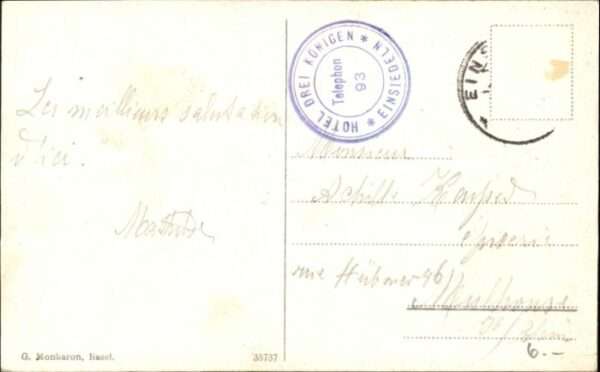 Les meilleurs salutation
d'ici.
Mathilde
HOTEL DREI KÖNIGEN * EINSIEDELN *
Telephon
93
* EINS
Monsieur
Achille
rue Hübner 46
Mulhouse
Ht/Rhin
6.-
G. Monbaron, Basel.
35737